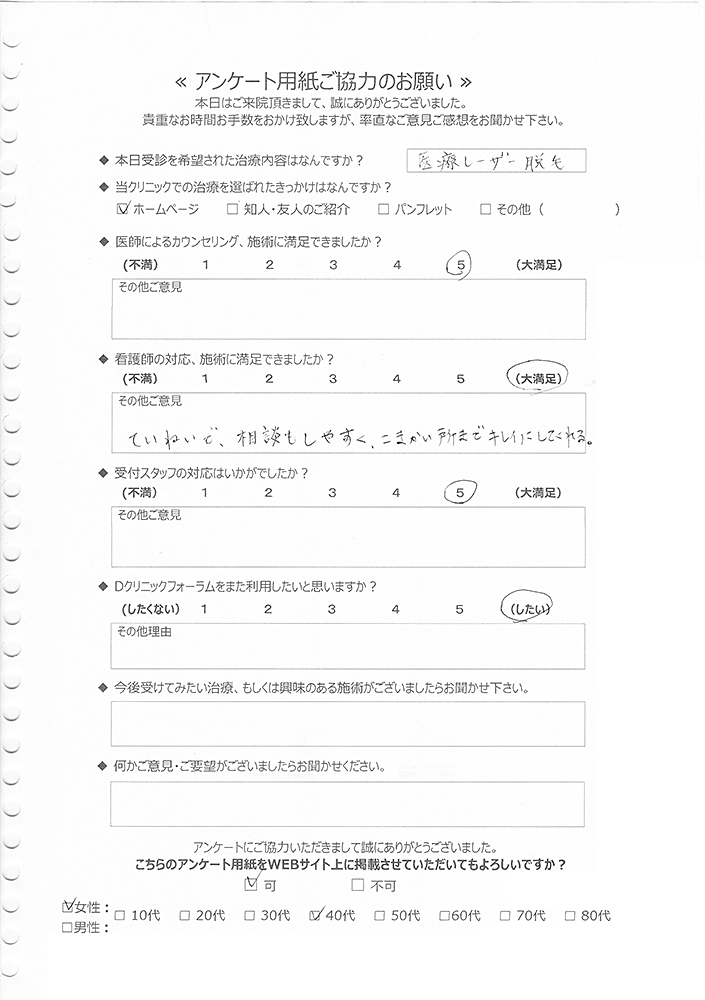 ≪ アンケート用紙ご協力のお願い ≫
本日はご来院頂きまして、誠にありがとうございました。
貴重なお時間お手数をおかけ致しますが、率直なご意見ご感想をお聞かせ下さい。
◆ 本日受診を希望された治療内容はなんですか？ 医療レーザー脱毛
◆ 当クリニックでの治療を選ばれたきっかけはなんですか？
☑ ホームページ □ 知人・友人のご紹介 □ パンフレット □ その他（ ）
◆ 医師によるカウンセリング、施術に満足できましたか？
(不満) 1 2 3 4 5 (大満足)
その他ご意見
◆ 看護師の対応、施術に満足できましたか？
(不満) 1 2 3 4 5 (大満足)
その他ご意見
ていねいで、相談もしやすく、こまかい所までキレイにしてくれる。
◆ 受付スタッフの対応はいかがでしたか？
(不満) 1 2 3 4 5 (大満足)
その他ご意見
◆ Dクリニックフォーラムをまた利用したいと思いますか？
(したくない) 1 2 3 4 5 (したい)
その他理由
◆ 今後受けてみたい治療、もしくは興味のある施術がございましたらお聞かせ下さい。
◆ 何かご意見・ご要望がございましたらお聞かせください。
アンケートにご協力いただきまして誠にありがとうございました。
こちらのアンケート用紙をWEBサイト上に掲載させていただいてもよろしいですか？
☑ 可 □ 不可
☑女性： □ 10代 □ 20代 □ 30代 ☑ 40代 □ 50代 □60代 □ 70代 □ 80代
□男性：